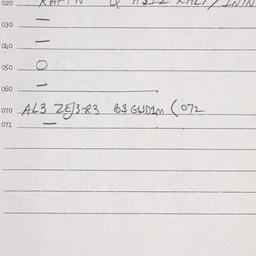 020
030 —
040 —
050 O
060 —
070 AL3 ZEJ3-R3 B3 GUD1M (072
071 —